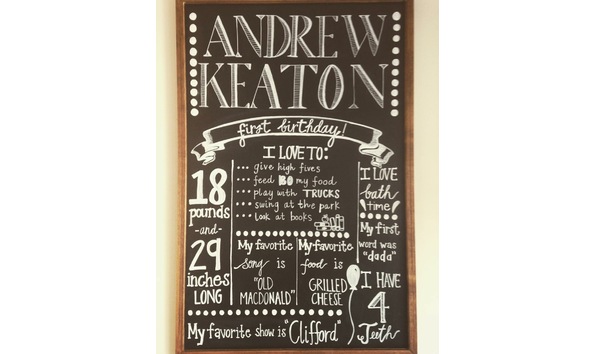 ANDREW
KEATON
first birthday!
18
pounds
-and-
29
inches
LONG
I LOVE TO:
give high fives
feed BO my food
play with TRUCKS
swing at the park
look at books
I LOVE
bath
time!
My first
word was
"dada"
My favorite
song is
"OLD
MACDONALD"
My favorite
food is
GRILLED
CHEESE
I HAVE
4
Teeth
My favorite show is "Clifford"